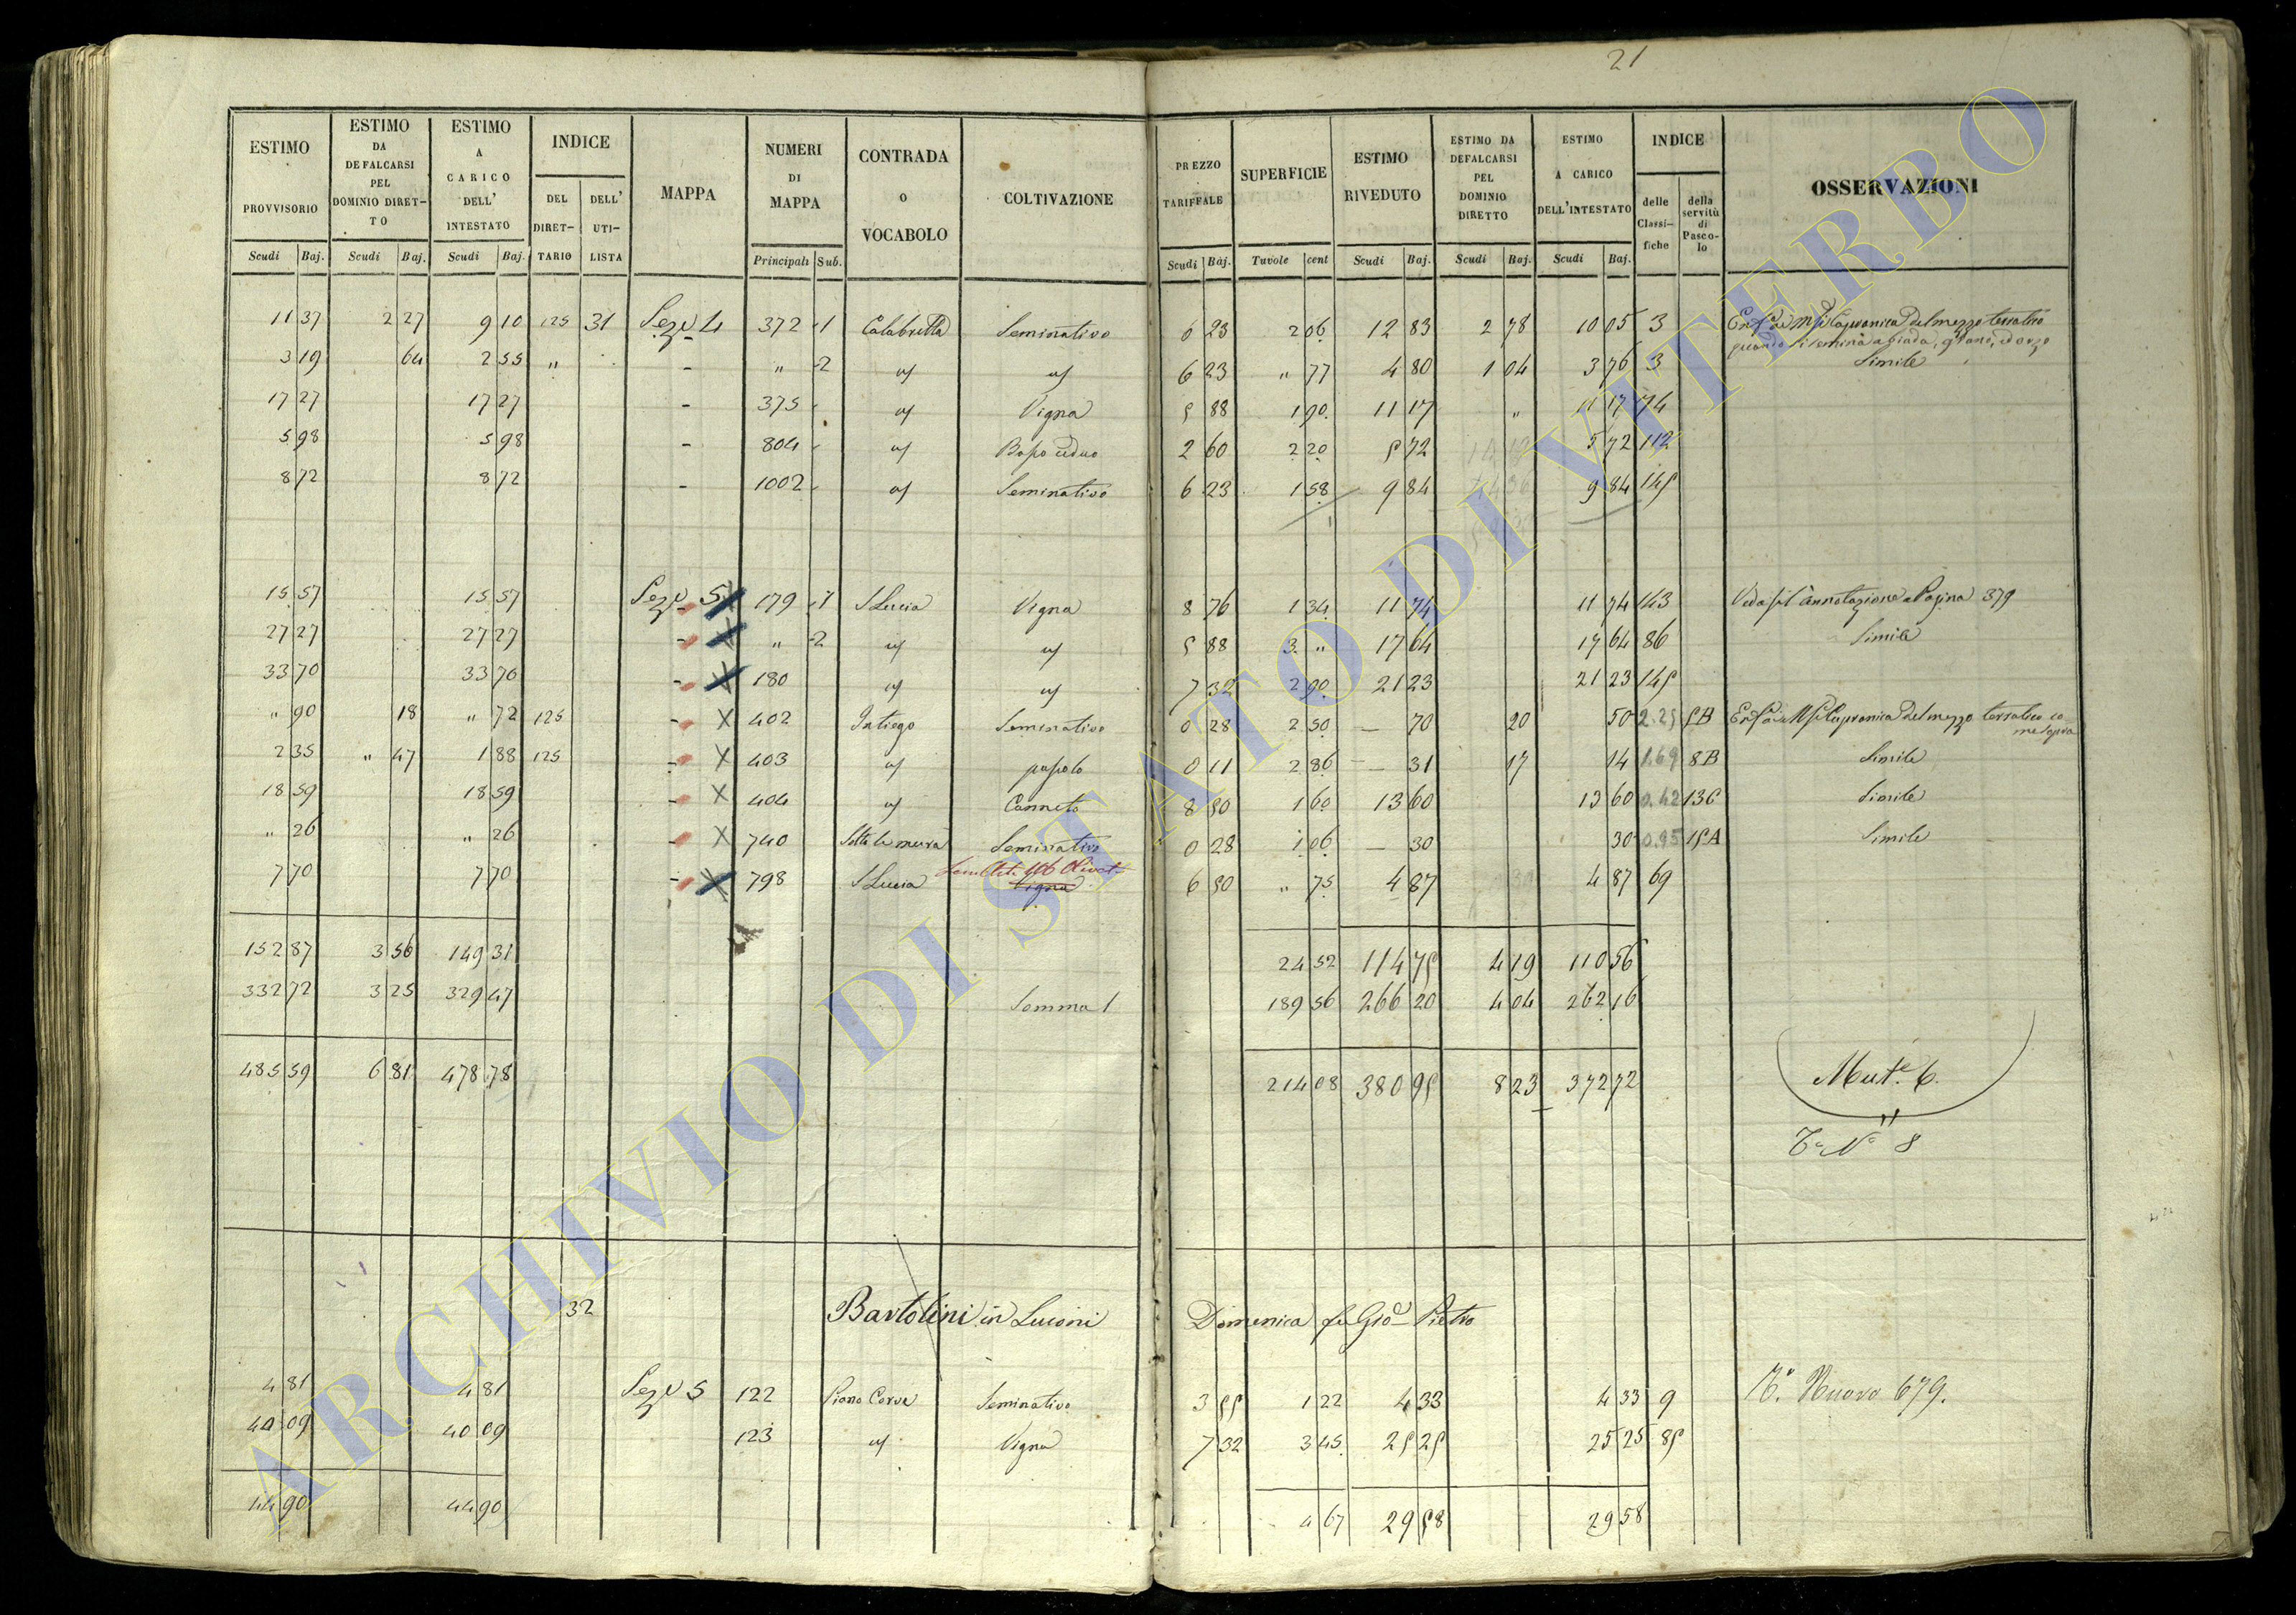 21
ESTIMO PROVVISORIO | ESTIMO DA DEFALCARSI PEL DOMINIO DIRETTO | ESTIMO A CARICO DELL' INTESTATO | INDICE DEL DIRETTARIO | DELL' UTILISTA | MAPPA | NUMERI DI MAPPA | CONTRADA O VOCABOLO | COLTIVAZIONE | PREZZO TARIFFALE | SUPERFICIE | ESTIMO RIVEDUTO | ESTIMO DA DEFALCARSI PEL DOMINIO DIRETTO | ESTIMO A CARICO DELL'INTESTATO | INDICE delle Classifiche | della servitù di Pascolo | OSSERVAZIONI
Scudi Baj. | Scudi Baj. | Scudi Baj. | Principali Sub. | Scudi Baj. | Tavole cent | Scudi Baj. | Scudi Baj. | Scudi Baj.
11 37 | 2 27 | 9 10 | 125 | 31 | Seze 4 | 372 1 | Calabretta | Seminativo | 6 23 | 2 06 | 12 83 | 2 78 | 10 05 | 3 | del mezzo terratico
quando si semina a biada, grano, ed orzo
3 19 | 64 | 2 55 | " | - | " 2 | 6 23 | " 77 | 4 80 | 1 04 | 3 76 | 3 | Simile
17 27 | 17 27 | - | 375 | Vigna | 5 88 | 1 90 | 11 17 | " | 11 17 | 74
5 98 | 5 98 | - | 804 | Bosco ceduo | 2 60 | 2 20 | 5 72 | 5 72 | 112
8 72 | 8 72 | - | 1002 | Seminativo | 6 23 | 1 58 | 9 84 | 9 84 | 145
15 57 | 15 57 | Seze 5 | 179 1 | S Lucia | Vigna | 8 76 | 1 34 | 11 74 | 11 74 | 143 | Vedasi l'Annotazione a Pagina 379
27 27 | 27 27 | - | " 2 | 5 88 | 3 " | 17 64 | 17 64 | 86 | Simile
33 70 | 33 70 | - | 180 | 7 32 | 2 90 | 21 23 | 21 23 | 145
" 90 | 18 | " 72 | 125 | - | 402 | Seminativo | 0 28 | 2 50 | — 70 | 20 | 50 | 2.25 | 5B | del mezzo terratico come sopra
2 35 | " 47 | 1 88 | 125 | - | 403 | pascolo | 0 11 | 2 86 | — 31 | 17 | 14 | 1.69 | 8B | Simile
18 59 | 18 59 | - | 404 | Canneto | 8 50 | 1 60 | 13 60 | 13 60 | 0.42 | 13C | Simile
" 26 | " 26 | - | 740 | Sotto le mura | Seminativo | 0 28 | 1 06 | — 30 | 30 | 0.95 | 15A | Simile
7 70 | 7 70 | - | 798 | S Lucia | Vigna | 6 50 | " 75 | 4 87 | 4 87 | 69
152 87 | 3 56 | 149 31 | 24 52 | 114 75 | 4 19 | 110 56
332 72 | 3 25 | 329 47 | Somma | 189 56 | 266 20 | 4 04 | 262 16
485 59 | 6 81 | 478 78 | 214 08 | 380 95 | 8 23 | 372 72 | Mut.e 6.
N° 8
32 | Bartolini in Lucioni Domenica fu Gio Pietro
4 81 | 4 81 | Seze 5 | 122 | Piano Cerve | Seminativo | 3 55 | 1 22 | 4 33 | 4 33 | 9 | Nuovo 679.
40 09 | 40 09 | 123 | Vigna | 7 32 | 3 45 | 25 25 | 25 25 | 85
44 90 | 44 90 | 4 67 | 29 58 | 29 58
ARCHIVIO DI STATO DI VITERBO